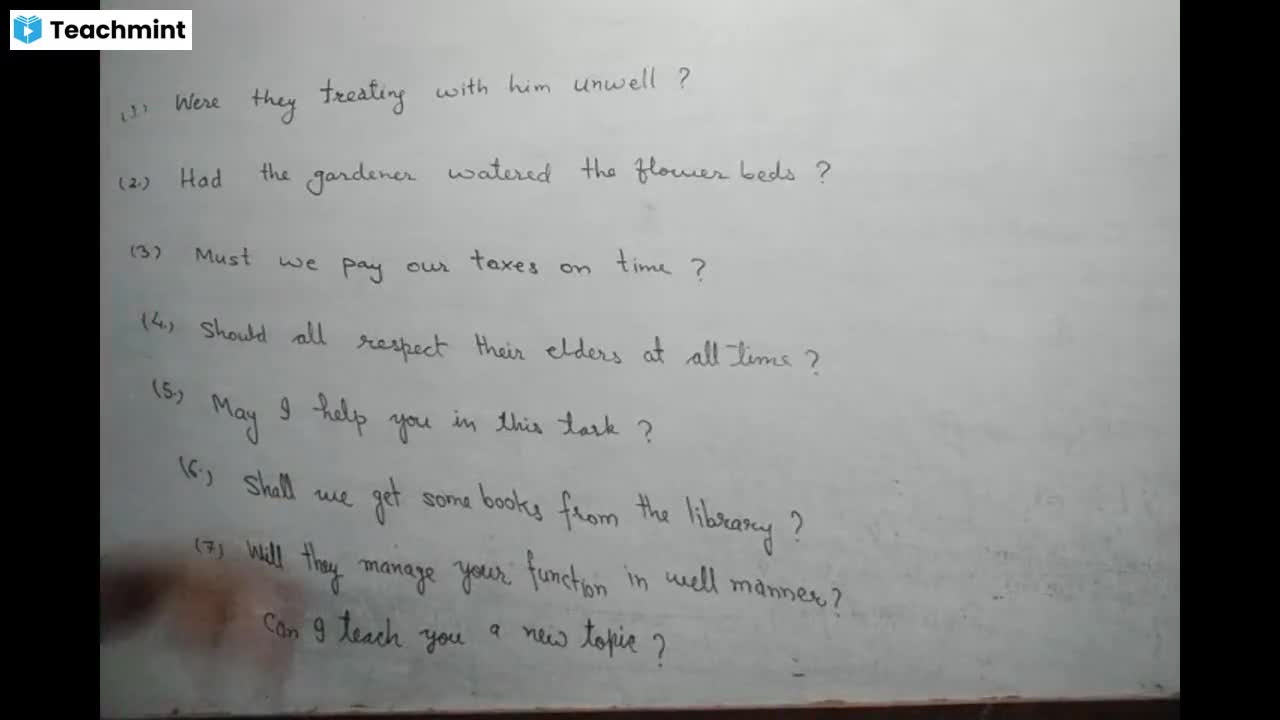 Teachmint
(1) Were they treating with him unwell ?
(2.) Had the gardener watered the flower beds ?
(3) Must we pay our taxes on time ?
(4.) Should all respect their elders at all time ?
(5.) May I help you in this task ?
(6.) Shall we get some books from the library ?
(7) Will they manage your function in well manner?
Can I teach you a new topic ?